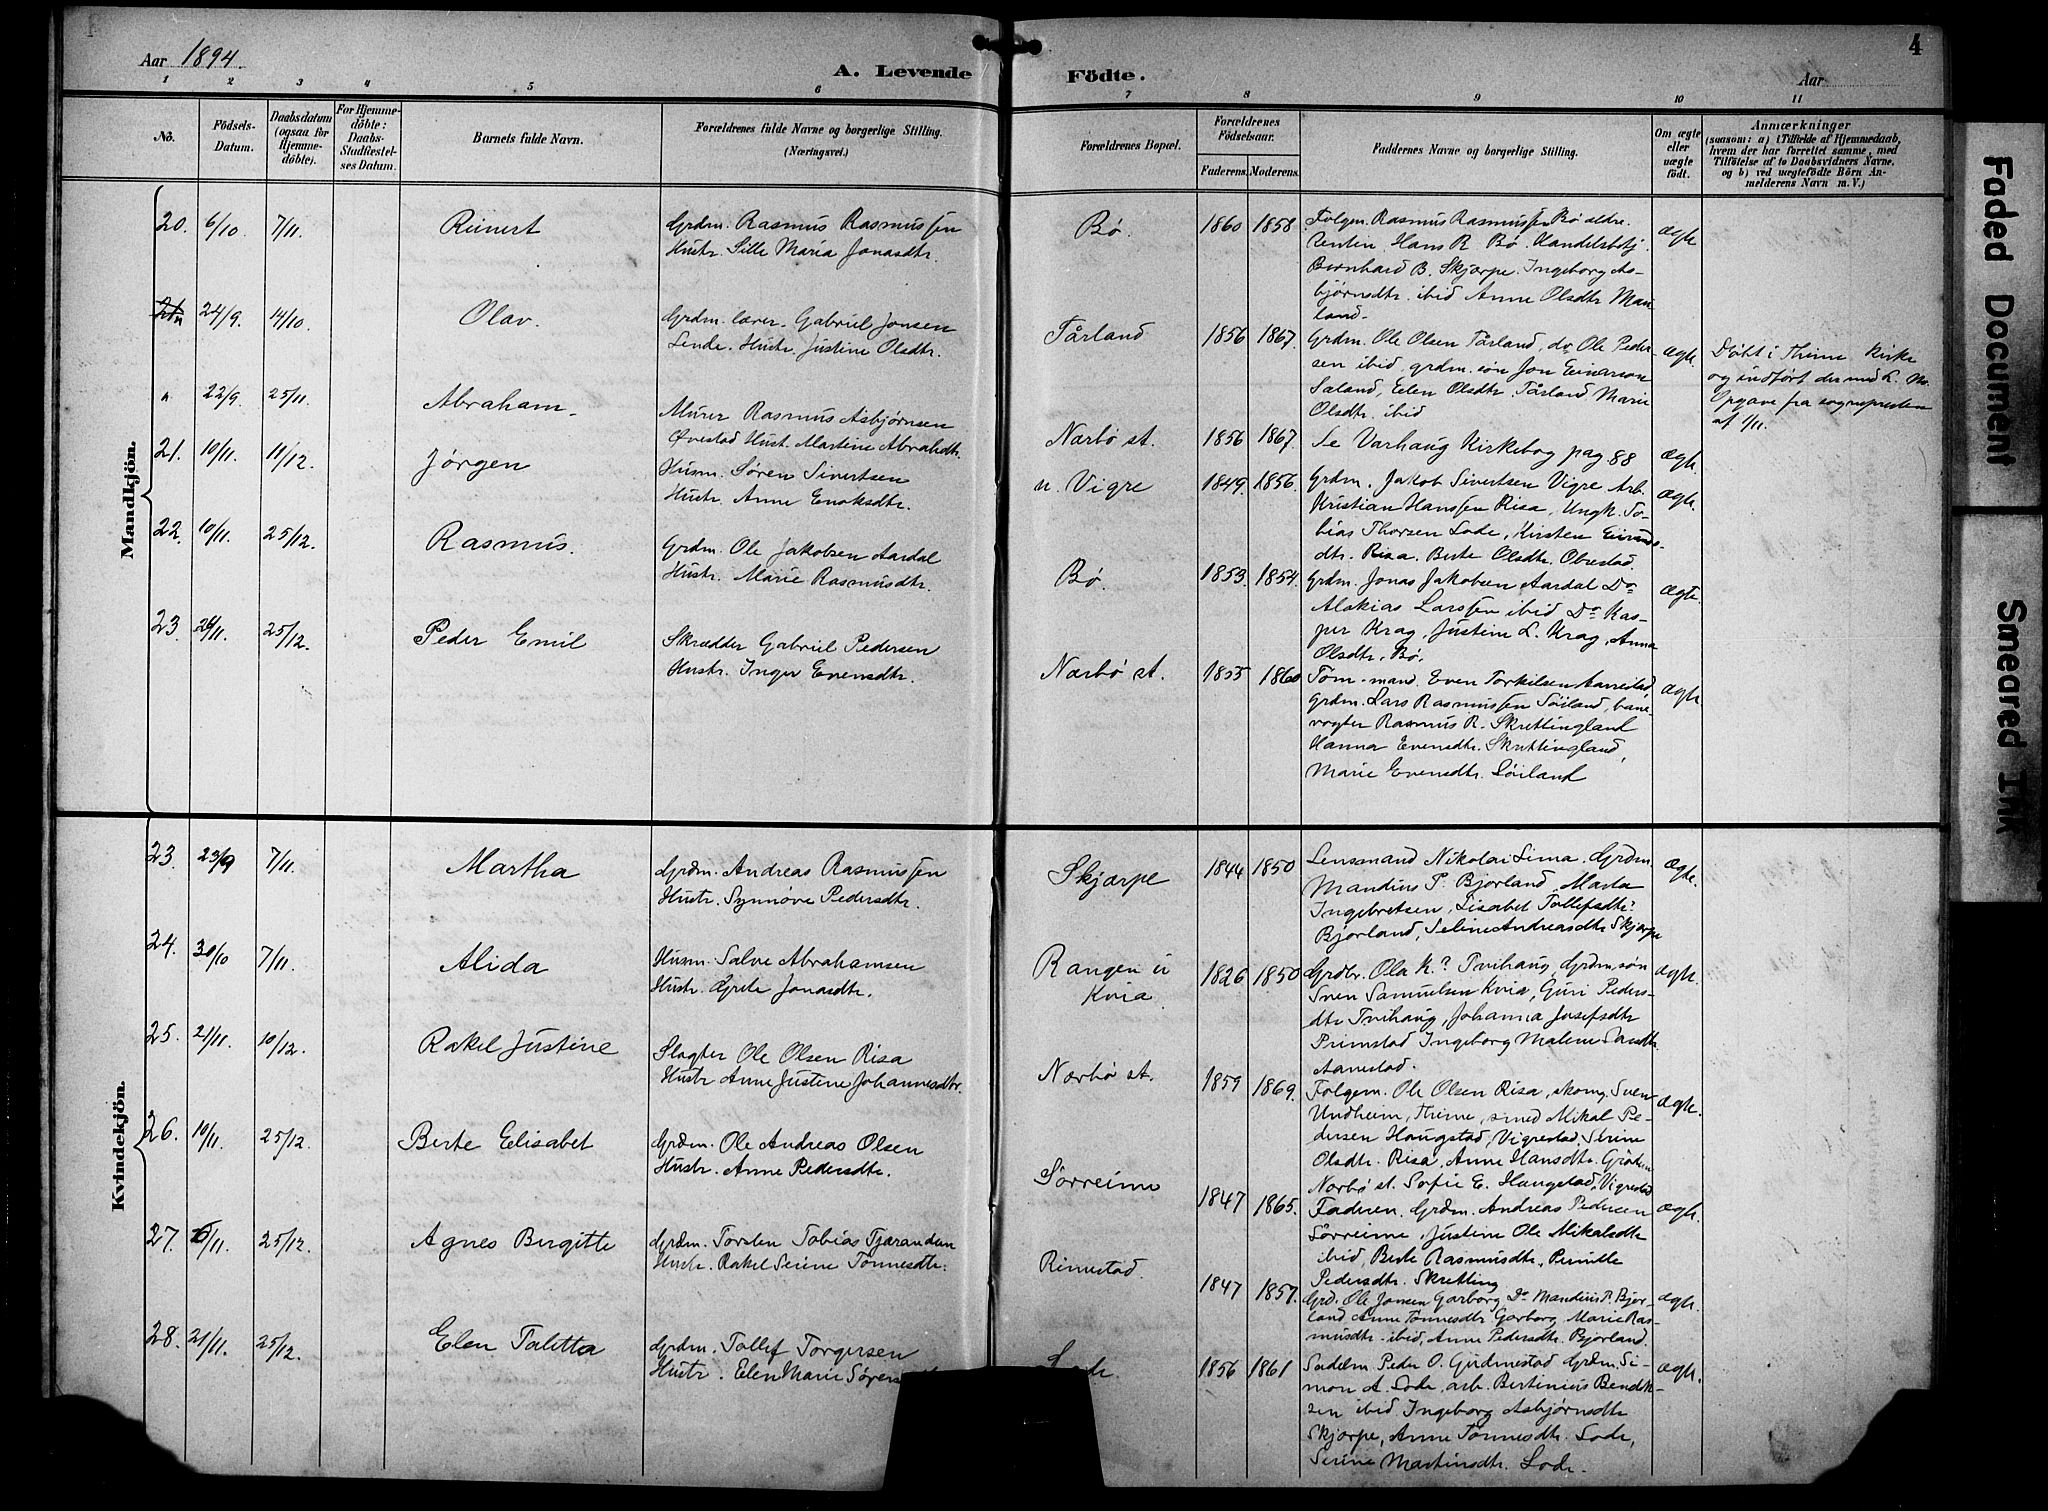 Aar 1894.
A. Levende Födte.
Aar
4
1 2 3 4 5 6 7 8 9 10 11
No.
Födsels-Datum.
Daabsdatum (ogsaa for Hjemme-döbte).
For Hjemme-döbte: Daabs-Stadfæstel-ses Datum.
Barnets fulde Navn.
Forældrenes fulde Navne og borgerlige Stilling.
(Næringsvei.)
Forældrenes Bopæl.
Forældrenes Födselsaar.
Faderens. Moderens.
Faddernes Navne og borgerlige Stilling.
Om ægte eller uægte födt.
Anmærkninger
(saasom: a) i Tilfælde af Hjemmedaab,
hvem der har forrettet samme, med
Tilföielse af to Daabsvidners Navne,
og b) ved uægtefödte Börn An-
melderens Navn m. V.)
Mandkjön.
20. 6/10 7/11. Reinert
Grdm. Rasmus Rasmussen
Hustr. Sille Maria Jonasdtr.
Bø. 1860 1858
Folgem. Rasmus Rasmussen Bø ældre.
Rentin Hans R. Bø. Handelsbtj.
Bernhard B. Skjærpe. Ingeborg As-
bjørnsdtr. ibid Anne Olsdtr Mau-
land.
ægte
24/9. 14/10. Olav.
Grdm. lærer. Gabriel Jonsen
Lende. Hustr. Justine Olsdtr.
Tårland 1856 1867.
Grdm. Ole Olsen Tårland, do Ole Peder-
sen ibid, grdm. søn Jon Einarson
Saland, Elen Olsdtr. Tårland Marie
Olsdtr. ibid
ægte.
Døbt i Thime Kirke
og indført der med L. No.
Opgave fra sognepresten
af 1/11.
" 22/9. 25/11. Abraham.
Murer Rasmus Asbjørnsen
Øvestad Hust. Martine Abrahdtr.
Nærbø st. 1856 1867.
Se Varhaug Kirkebog pag. 88
ægte.
21. 10/11. 11/12. Jørgen
Husm. Søren Sivertsen
Hustr. Anne Enoksdtr.
n. Vigre 1849. 1856.
Grdm. Jakob Sivertsen Vigre Arb.
Kristian Hanssen Risa, Ungk. To-
bias Thorsen Lode, Kirsten Eivinds-
dtr. Risa. Berte Olsdtr. Obrestad.
ægte.
22. 10/11. 25/12. Rasmus.
Grdm. Ole Jakobsen Aardal
Hustr. Marie Rasmusdtr.
Bø. 1853. 1854.
Grdm. Jonas Jakobsen Aardal Do
Alakias Larssen ibid Do Kas-
per Krag, Justine L. Krag, Anna
Olsdtr. Bø.
ægte.
23. 24/11. 25/12. Peder Emil
Skrædder Gabriel Pedersen
Hustr. Inger Evensdtr.
Nærbø st. 1855 1860
Tøm.mand. Even Torkilsen Aarrestad
grdm. Lars Rasmussen Søiland, bane-
vogter Rasmus R. Skrettingland
Hanna Evensdtr. Skrettingland,
Marie Evensdtr. Søiland
ægte.
Kvindekjön.
23. 23/9 7/11. Martha
Grdm. Andreas Rasmussen
Hustr. Synnøve Pedersdtr.
Skjærpe 1844 1850
Lensmand Nikolai Lima. Grdm.
Mandius P. Bjorland, Marta
Ingebretsen, Lisabet Tollefsdtr.
Bjorland, Seline Andreasdtr. Skjærpe
Ægte.
24. 30/10 7/11. Alida
Husm. Salve Abrahamsen
Hustr. Grete Jonasdtr.
Rangen u Kvia. 1826 1850
Grdbr. Ola K. Tvihaug, Grdm. søn
Sven Samuelsen Kvia, Guri Peders-
dtr Tvihaug, Johanna Josefsdtr
Primstad Ingeborg Malene Sandtr.
Aanestad.
ægte.
25. 21/11. 10/12. Rakel Justine
Slagter Ole Olsen Risa
Hustr Anne Justine Johannesdtr.
Nærbø st. 1859 1869.
Folgem. Ole Olsen Risa, skom. Sven
Undheim, Thime, smed Mikal Pe-
dersen Haugstad, Vigrestad. Serine
Olsdtr. Risa, Anne Hansdtr. Grøtem
Nærbø st. Sofie E. Haugstad, Vigrestad
ægte.
26. 10/11. 25/12. Berte Elisabet
Grdm. Ole Andreas Olsen
Hustr. Anne Pedersdtr.
Sørreime 1847 1865.
Faderen. Grdm. Andreas Pedersen
Sörreime, Justine Ole Mikalsdtr
ibid, Berte Rasmusdtr., Pernille
Pedersdtr. Skretting
ægte.
27. 5/11. 25/12. Agnes Birgitte
Grdm. Torsten Tobias Tjerandsen
Hustr. Rakel Serine Tønnesdtr.
Rimestad. 1847 1857.
Grd. Ole Jonsen Garborg Do Mandius P. Bjor-
land, Anne Tønnesdtr Garborg, Marie Ras-
musdtr. ibid, Anne Pedersdtr. Bjorland.
ægte.
28. 21/11. 25/12. Elen Talitta
Grdm. Tollef Torgersen
Hustr. Elen Marie Sørens
Lode. 1856 1861
Sadelm. Peder O. Gudmestad Grdm. Si-
mon A. Lode, arb. Bertinius Bendik-
sen ibid Ingeborg Asbjørnsdtr
Skjærpe, Anne Tønnesdtr. Lode,
Serine Martinsdtr. Lode.
ægte.
Faded Document
Smeared Ink